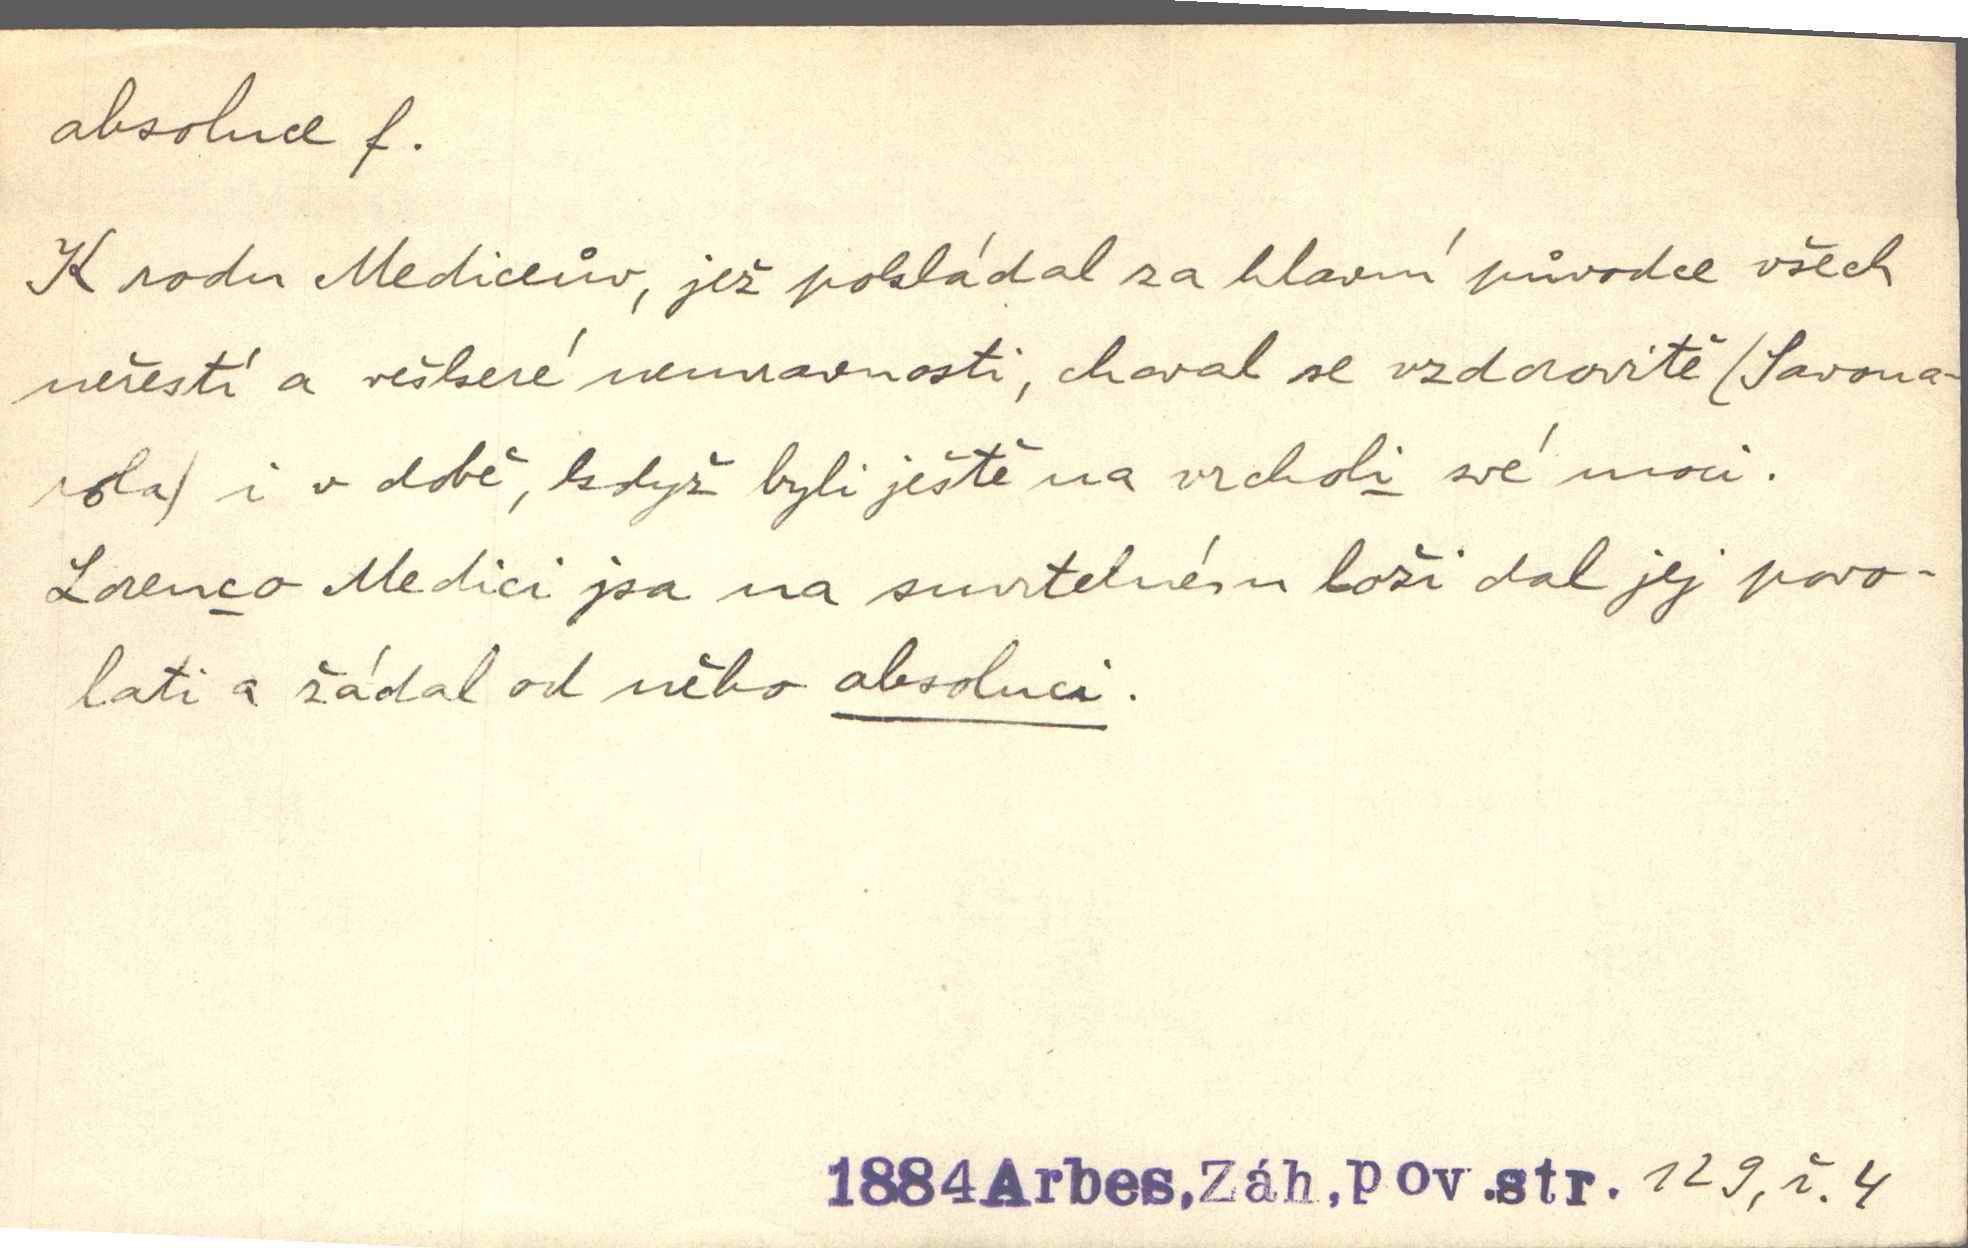 absoluce f.
K rodu Mediceův, jež pokládal za hlavní původce všech
neřestí a veškeré nemravnosti, choval se vzdorovitě (Savona-
rola) i v době, když byli ještě na vrcholi své moci.
Lorenco Medici jsa na smrtelném loži dal jej povo-
lati a žádal od něho absoluci.
1884 Arbes, Záh, pov. str. 129, ř. 4